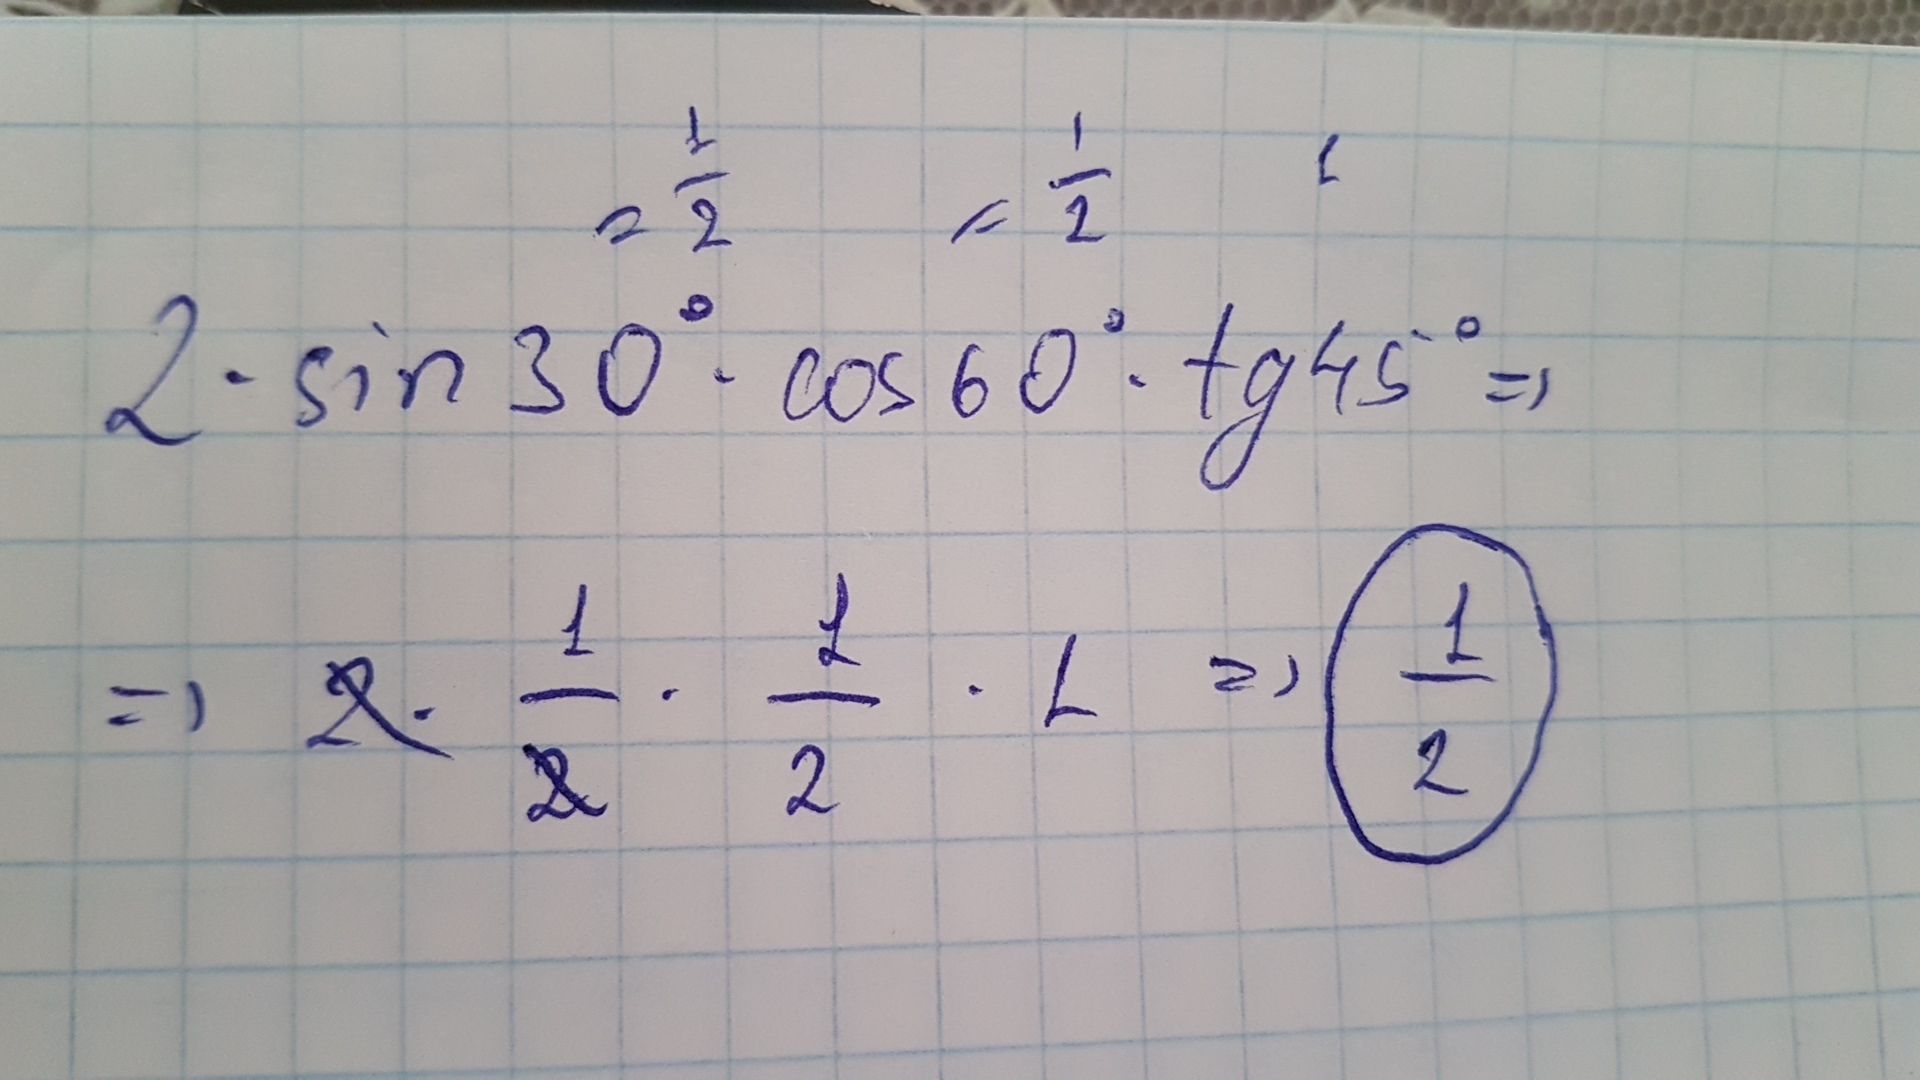 = 1/2 = 1/2 1
2 · sin 30° · cos 60° · tg 45° =>
=> 2 · 1/2 · 1/2 · 1 => 1/2